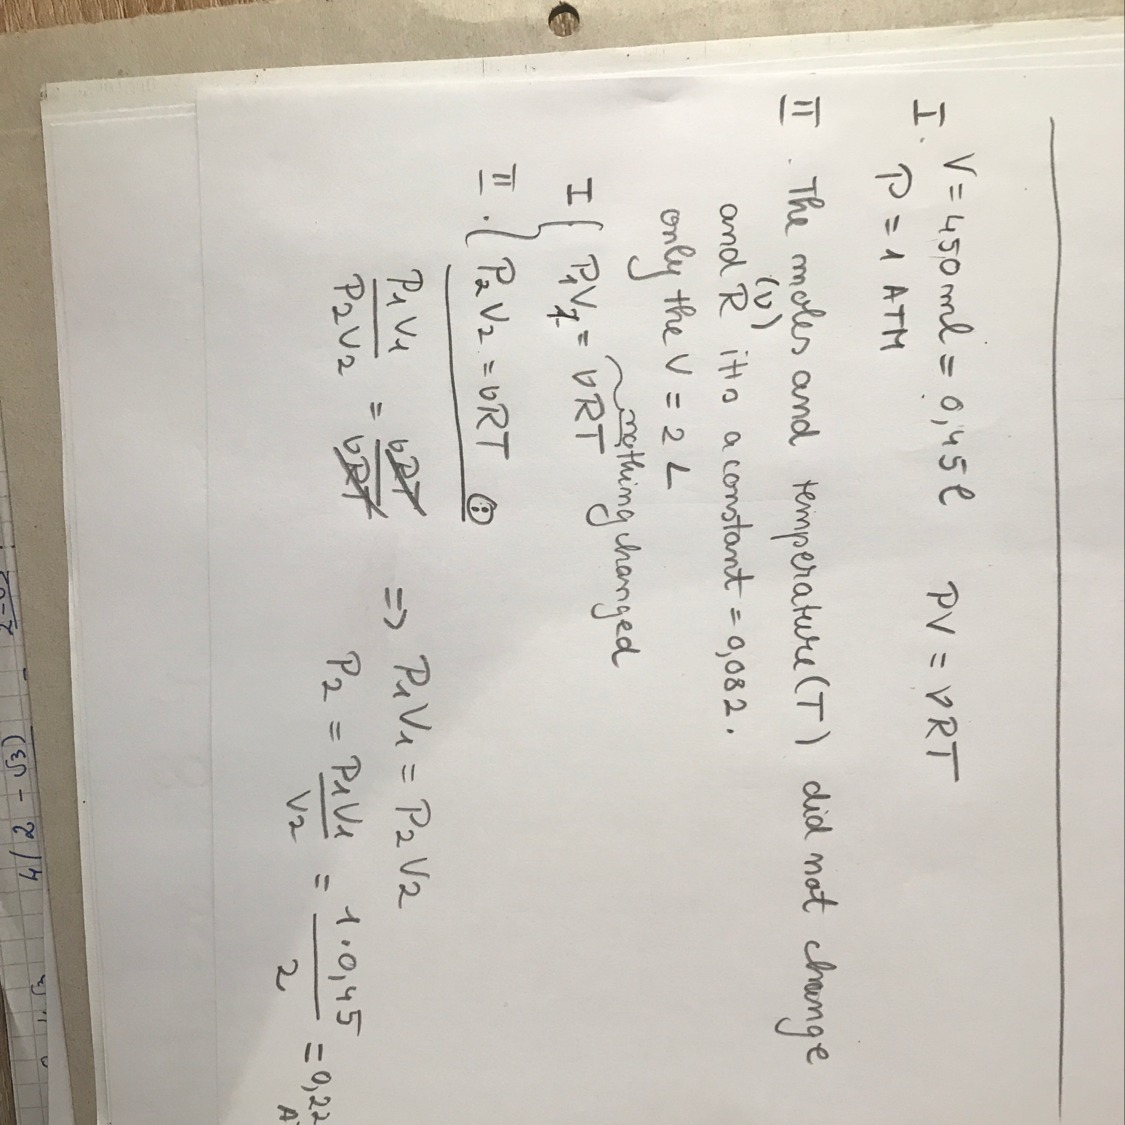 I. V = 450ml = 0,45l PV = νRT
P = 1 ATM
II. The moles and temperature (T) did not change
(ν)
and R it is a constant = 0,082.
only the V = 2 L
nothing changed
I { P1V1 = νRT
II. { P2V2 = νRT (:)
P1V1 / P2V2 = νRT / νRT => P1V1 = P2V2
P2 = P1V1 / V2 = 1·0,45 / 2 = 0,22
4(2 - √3)